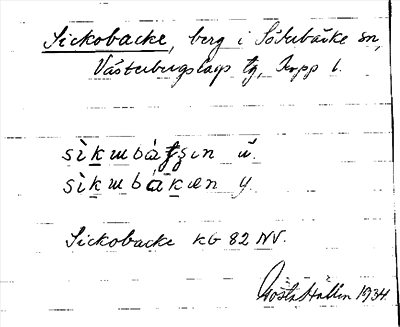 Sickobacke, berg i Söderbärke sn,
Västerbergslags tg, Kopp l.
sìkɯbátʂɩn ä.
sìkɯbákæn y.
Sickobacke KG 82 NV.
Gösta Hallen 1934.